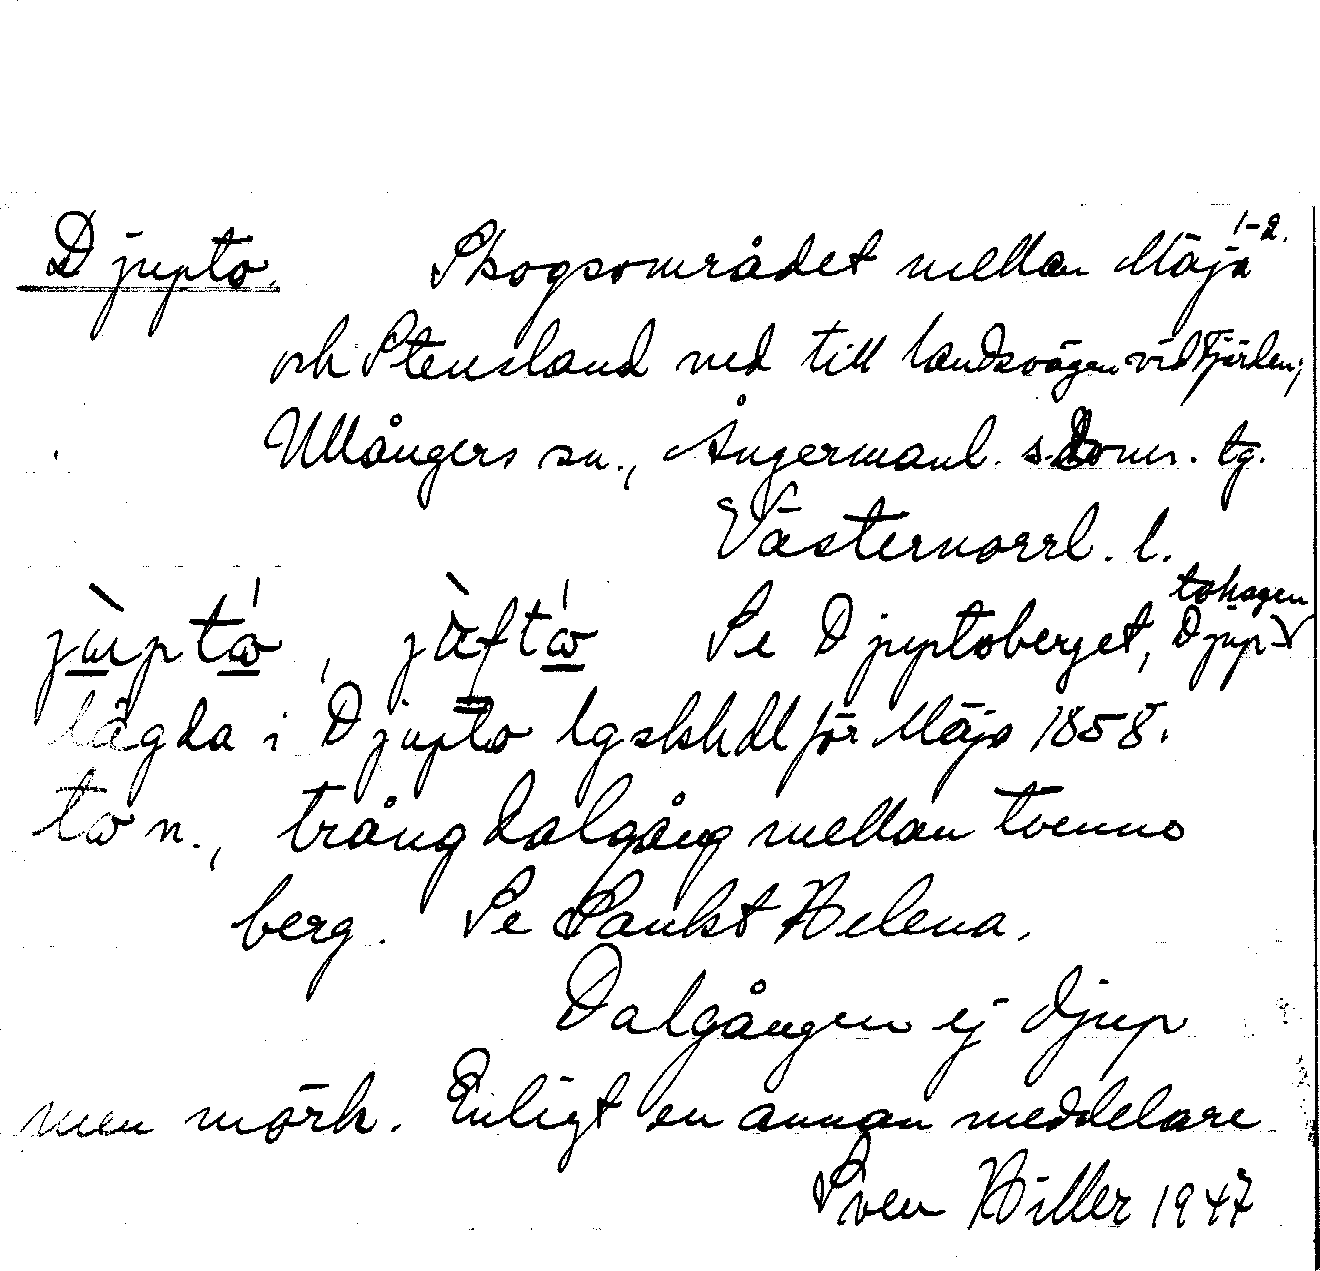 Djupto. Skogsområdet mellan Mäja 1-2.
och Stensland ned till landsvägen vid Fjärden;
Ullångers sn., Ångermanl. s. Doms. tg.
Västernorrl. l.
Se Djuptoberget, Djuptohagen
lägda i Djupto lgskhdl för Mäja 1858.
to n., trång dalgång mellan tvenne
berg. Se Sankt Helena.
Dalgången ej djup
men mörk. Enligt en annan meddelare
Sven Hiller 1947